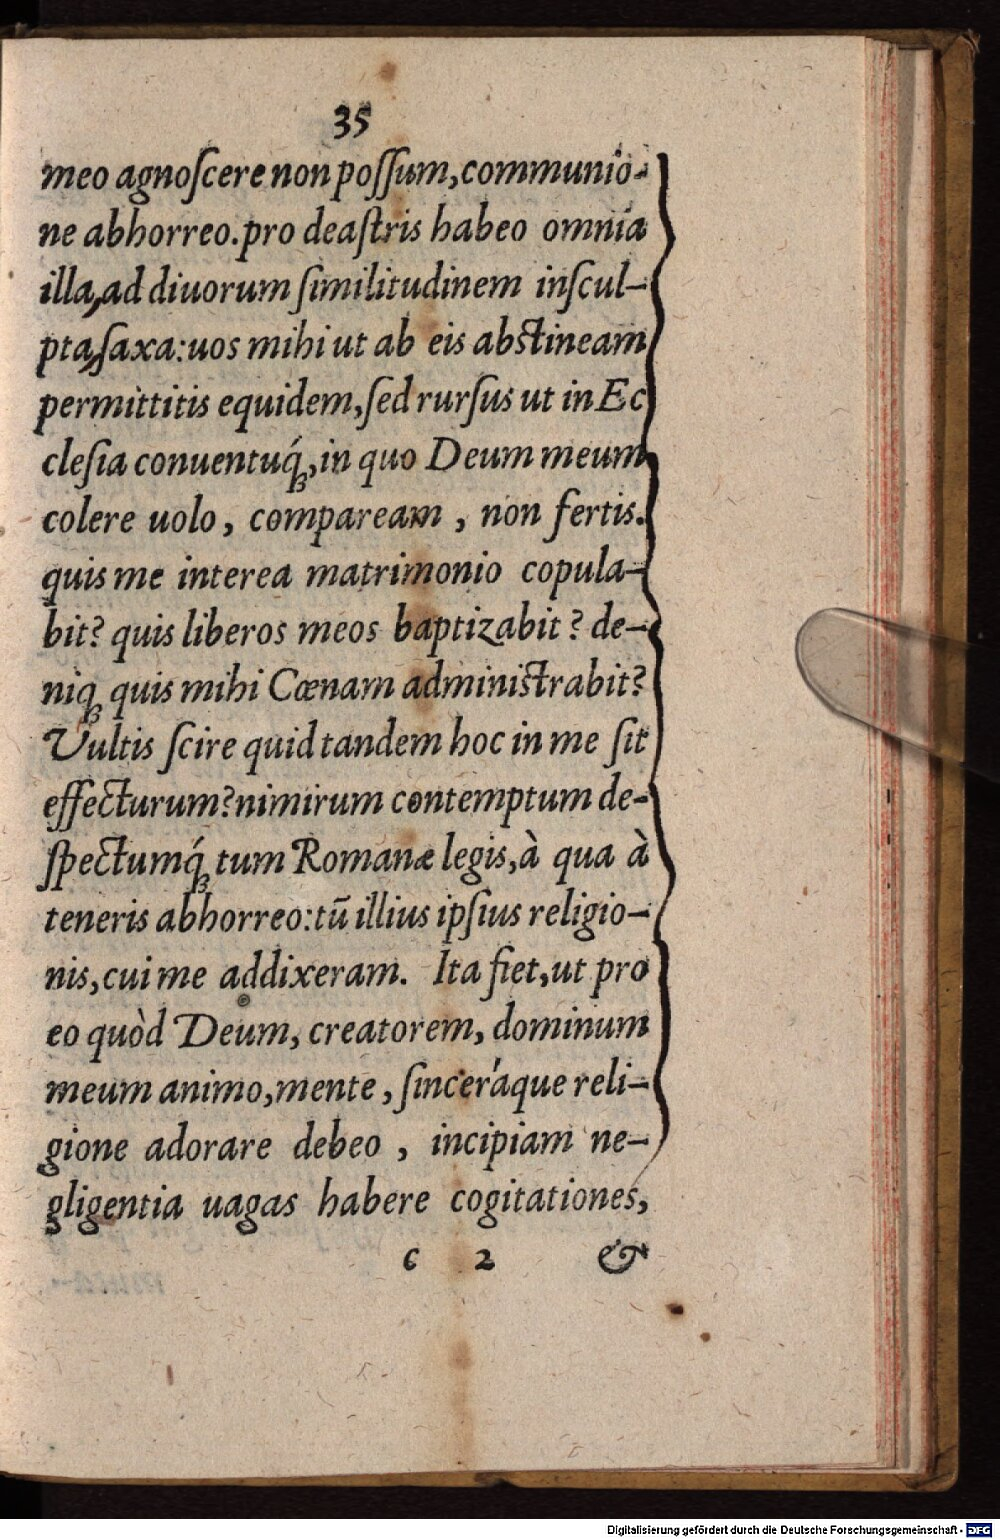 35
meo agnoſcere non poſſum, communio-
ne abhorreo. pro deaſtris habeo omnia
illa, ad diuorum ſimilitudinem inſcul-
pta, ſaxa: uos mihi ut ab eis abſtineam
permittitis equidem, ſed rurſus ut in Ec
cleſia conuentuq́;, in quo Deum meum
colere uolo, compaream, non fertis.
quis me interea matrimonio copula-
bit? quis liberos meos baptizabit? de-
niq; quis mihi Cœnam adminiſtrabit?
Vultis ſcire quid tandem hoc in me ſit
effecturum? nimirum contemptum de-
ſpectumq́; tum Romanæ legis, à qua à
teneris abhorreo: tū illius ipſius religio-
nis, cui me addixeram. Ita fiet, ut pro
eo quòd Deum, creatorem, dominum
meum animo, mente, ſinceráque reli-
gione adorare debeo, incipiam ne-
gligentia uagas habere cogitationes,
c 2 &
Digitalisierung gefördert durch die Deutsche Forschungsgemeinschaft - DFG